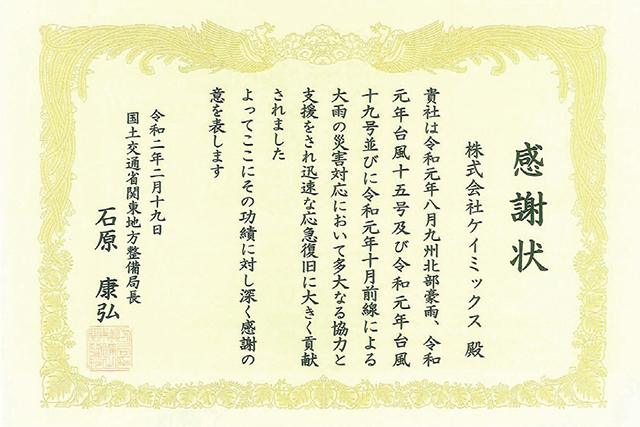 感謝状
株式会社ケイミックス 殿
貴社は令和元年八月九州北部豪雨、令和
元年台風十五号及び令和元年台風
十九号並びに令和元年十月前線による
大雨の災害対応において多大なる協力と
支援をされ迅速な応急復旧に大きく貢献
されました
よってここにその功績に対し深く感謝の
意を表します
令和二年二月十九日
国土交通省関東地方整備局長
石原 康弘